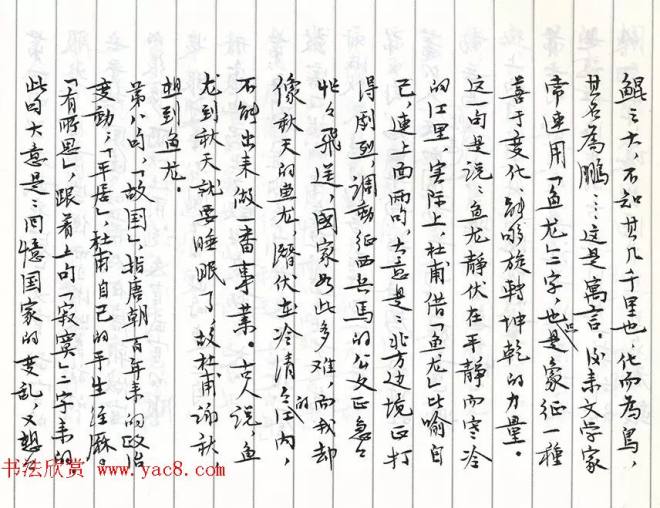 鲲之大，不知其几千里也；化而为鸟，
其名为鹏……这是寓言。后来文学家
常连用「鱼龙」二字，也是象征一种
善于变化、能够旋转坤乾的力量。
这一句是说：鱼龙静伏在平静而寒冷
的江里，实际上，杜甫借「鱼龙」比喻自
己，连上面两句，大意是：北方边境正打
得剧烈，调动征西兵马的公文正急急
忙忙飞送，国家如此多难，而我却
像秋天的鱼龙潜伏在冷清清的江内，
不能出来做一番事业。古人说鱼
龙到秋天就要睡眠了，故杜甫咏秋
想到鱼龙。
第八句，「故国」，指唐朝百年来的政治
变动；「平居」，杜甫自己的平生经历。
「有所思」，跟着上句「寂寞」二字来的，
此句大意是：回忆国家的变乱，又想
书法欣赏
www.yac8.com